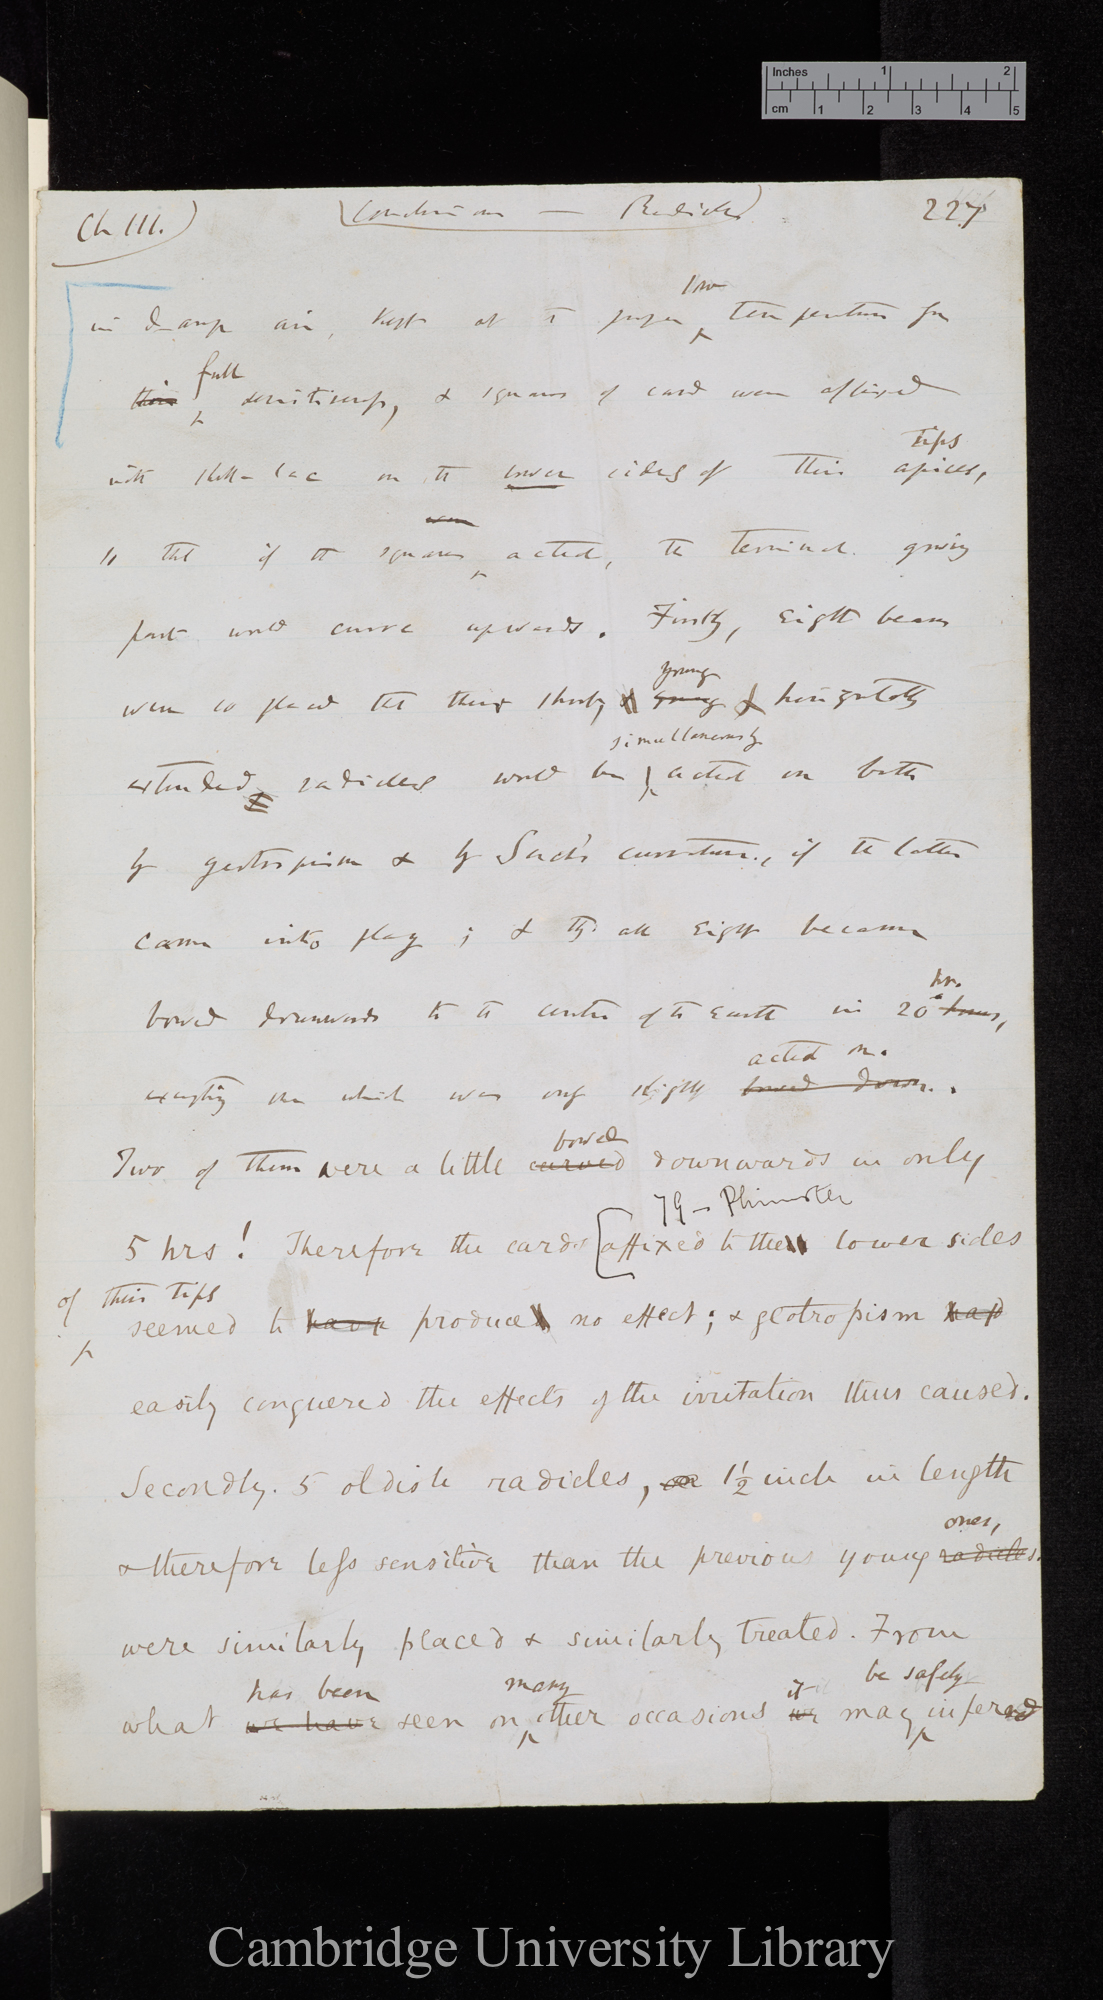 Inches 1 2
cm 1 2 3 4 5
Ch III.) (Conclusion — Radicles) 227
low
in damp air, kept at t proper temperature for
full
their sensitiveness, & squares of card were affixed
tips
with shell-lac on th lower sides of their apices,
were
so tht if th squares acted, th terminal growing
part would curve upwards. Firstly, eight beans
young
were so placed tht their short, young & horizontally
simultaneously
extended, radicles would be acted on both
by geotropism & by Sachs' curvature, if th latter
came into play; & they all eight became
hr.
bowed downwards to t centre of th earth in 20 hours,
acted on.
excepting one which was only slightly bowed down.
bowed
Two of them were a little curved downwards in only
79 — Phimister
5 hrs! Therefore the cards [affixed to the lower sides
of their tips
seemed to have produced no effect; & geotropism had
easily conquered the effects of the irritation thus caused.
Secondly. 5 oldish radicles, 1½ inch in length
ones,
& therefore less sensitive than the previous young radicles.
were similarly placed & similarly treated. From
has been many it be safely
what we have seen on other occasions we may inferred
Cambridge University Library